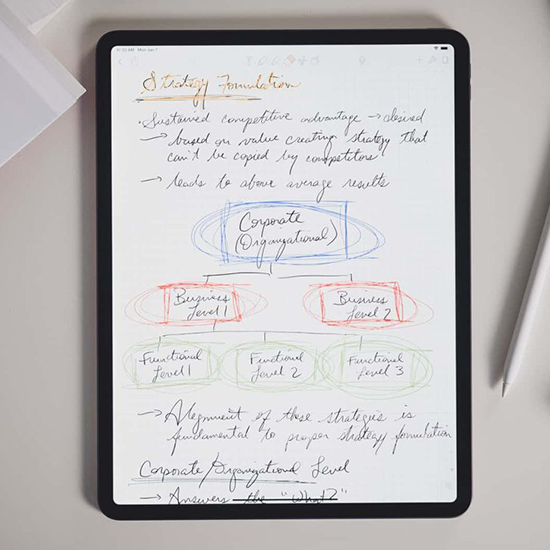 11:32 AM Mon Jan 7
Strategy Formulation
• Sustained competitive advantage → desired
→ based on value creating strategy that
can't be copied by competitors
→ leads to above average results
Corporate
(Organizational)
Business
Level 1
Business
Level 2
Functional
Level 1
Functional
Level 2
Functional
Level 3
→ Alignment of these strategies is
fundamental to proper strategy formulation
Corporate/Organizational Level
→ Answers the "What?"